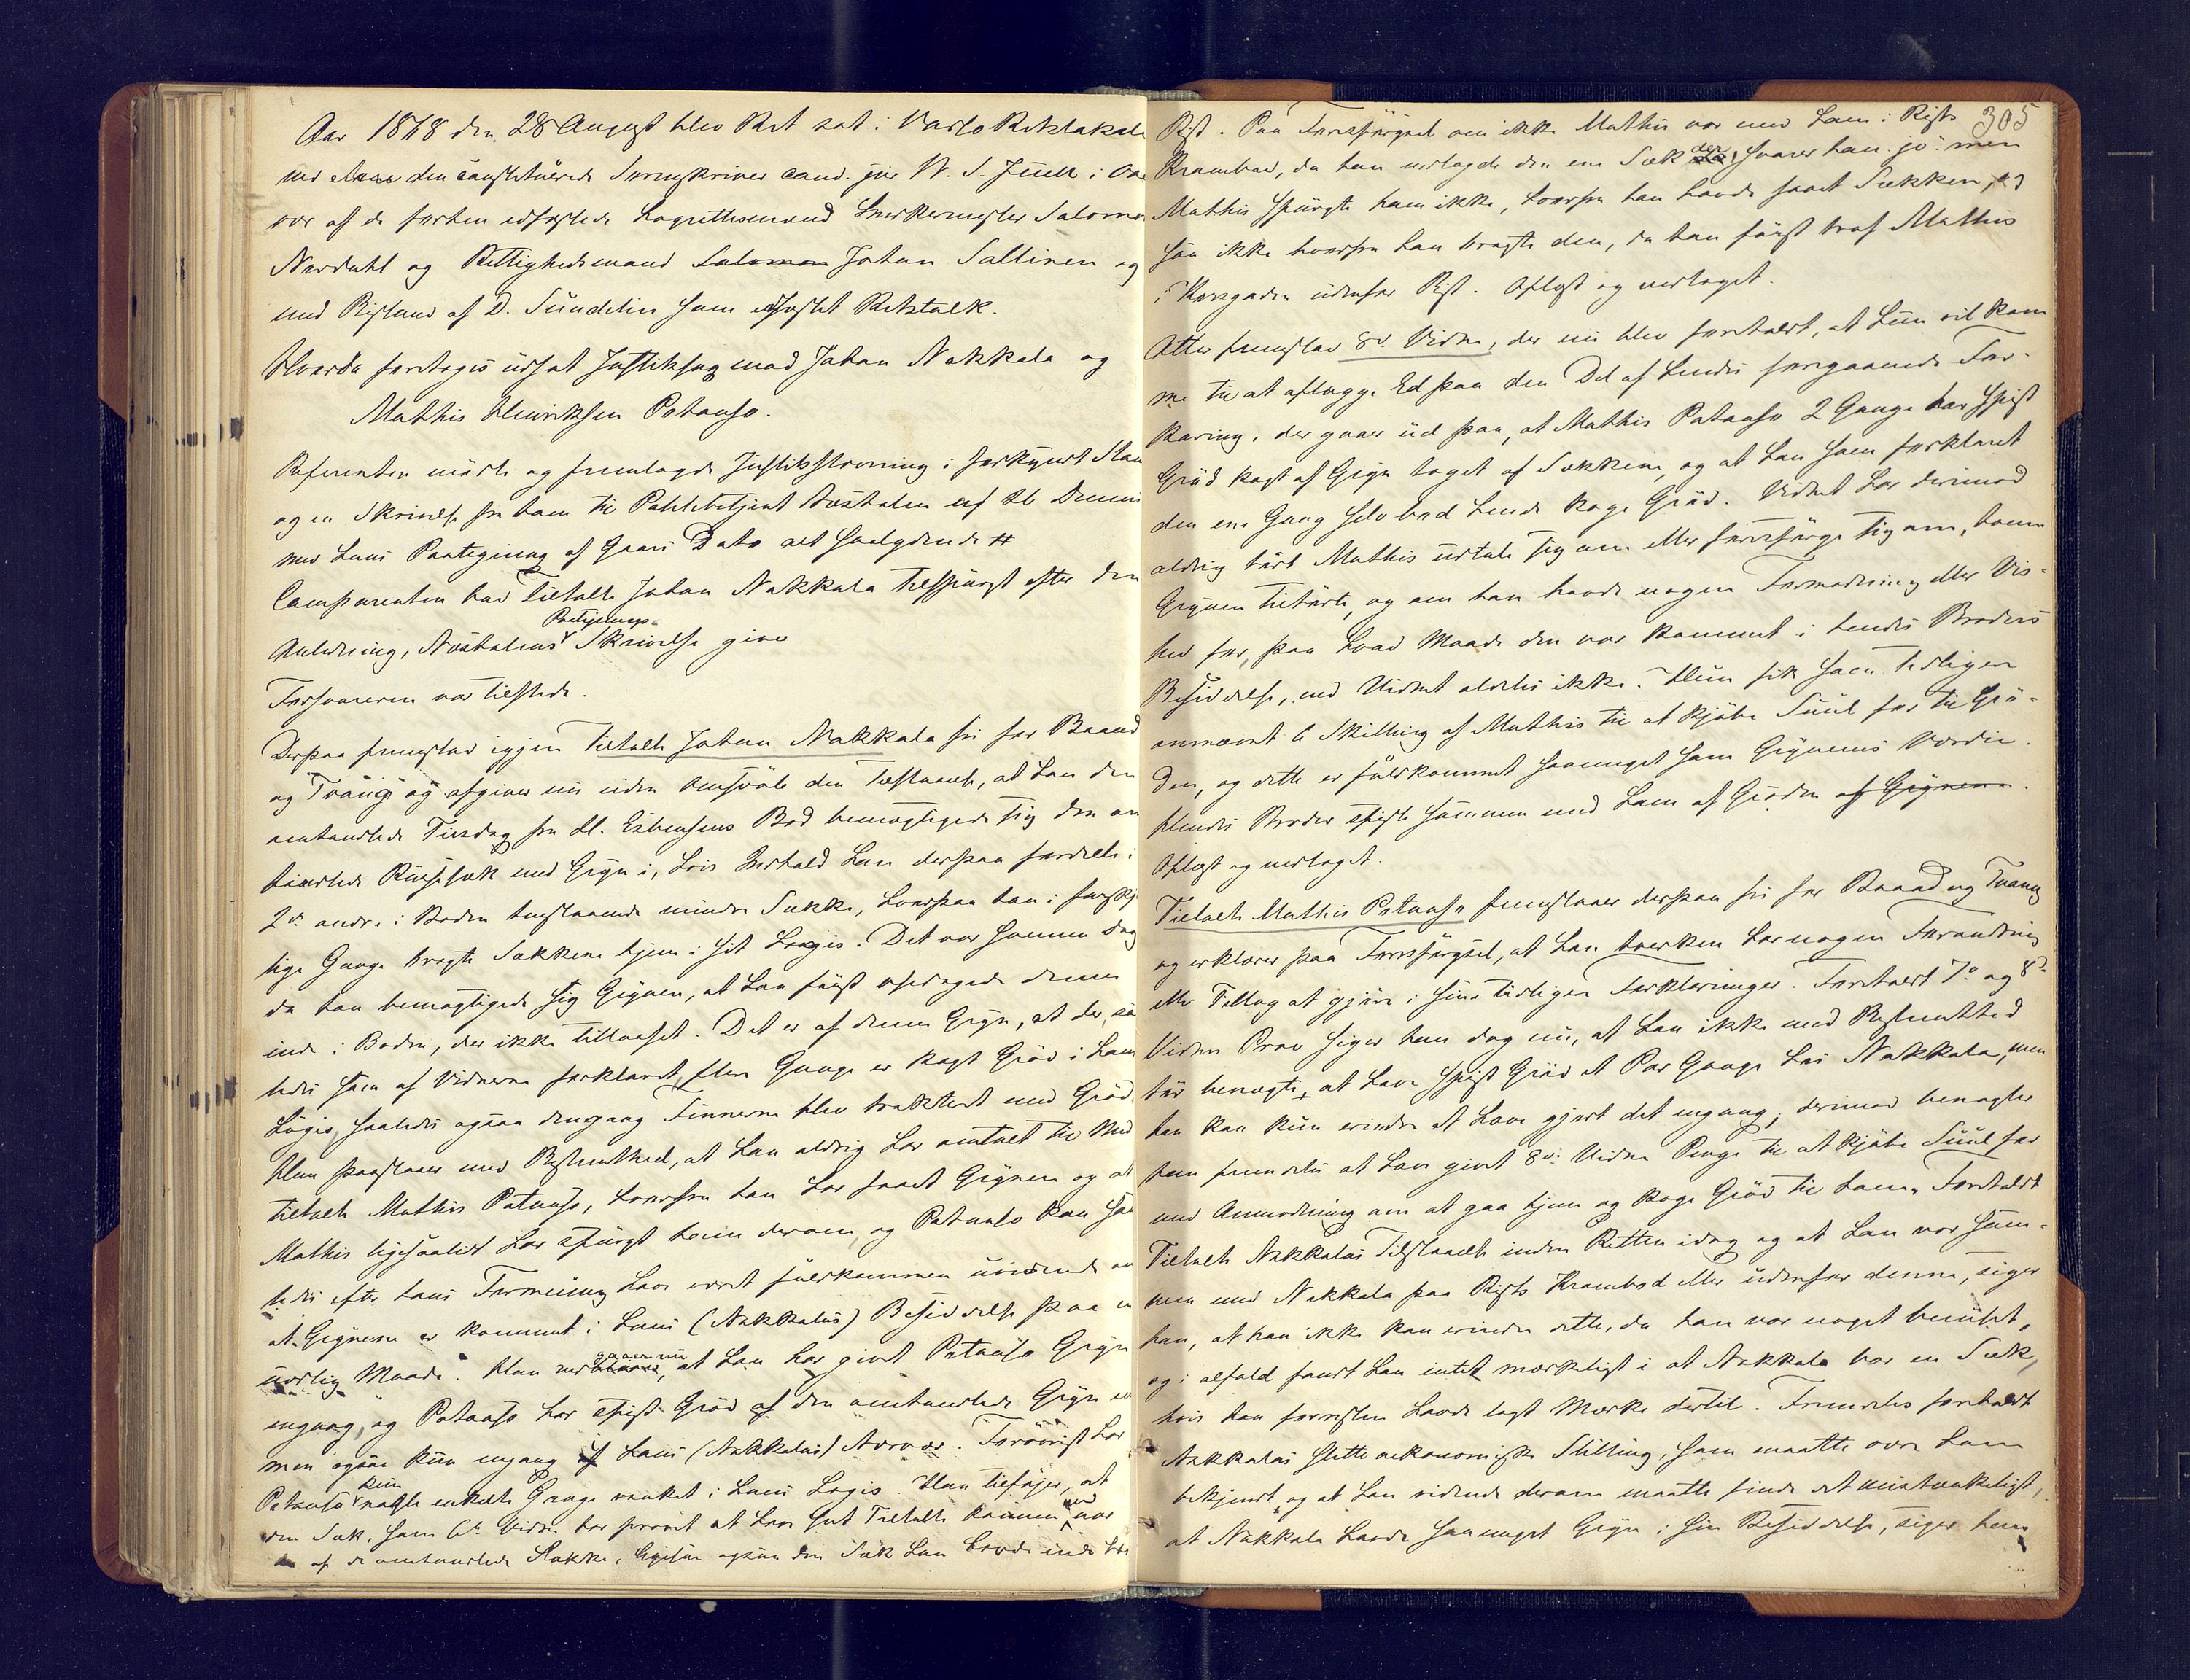 Aar 1868 den 28 August blev Ret sat i Vadsø Retslokale
ved den constituerede Sorenskriver cand. jur W. S. Juell i Over
vær af de forhen edfæstede Lagrettesmænd Snedkermester Salomon
Nordahl og Rettighedsmand Salomon Johan Sallinen og
med Bistand af D. Sundelin som edfæstet Retstolk.
Hvorda foretoges udsat Justitssag mod Johan Nakkala og
Mathis Henriksen Pataaso.
Referenten mødte og fremlagde Justitsstevning i forkyndt Stand
og en Skrivelse fra ham til Politibetjent Austalen af d. Dennes
med hans Paategning af Gaars Dato alt saalydende #
Comparenten bad Tiltalte Johan Nakkala tilspurgt efter den
Anledning, Austalens Paategnings- Skrivelse giver
Forsvareren var tilstede.
Derpaa fremstod igjen Tiltalte Johan Nakkala fri for Baand
og Tvang og afgiver nu uden Omsvøb den Tilstaaelse, at han den
omhandlede Tirsdag fra H. Esbensens Bod bemægtigede sig den om
handlede Russesæk med Gryn i, hvis Indhold han derpaa fordelte i
2de andre i Boden henstaaende mindre Sække, hvorpaa han i forskjel
lige Gange bragte Sækkene hjem i sit Logis. Det var samme Dag
da han bemægtigede sig Grynen, at han først opdagede denne
inde i Boden, der ikke tillaaset. Det er af denne Gryn, at der, saa
ledes som af Vidnerne forklaret, flere Gange er kogt Grød i hans
Logis, saaledes ogsaa dengang Finnerne blev trakteret med Grød
Han paastaar med Bestemthed, at han aldrig har omtalt til Med
tiltalte Mathis Pataaso, hvorfra han har faaet Grynen og at
Mathis ligesaalidt har spurgt ham derom, og Pataaso kan saa
ledes efter hans Formening have været fuldkommen uvidende om
at Grynene er kommet i hans (Nakkalas) Besiddelse paa en
uærlig Maade. Han gaaer nu, at han har givet Pataaso Gryn
engang, og Pataaso har spist Grød af den omhandlede Gryn
men ogsaa kun engang i hans (Nakkalas) Nærvær. Forøvrigt har
Pataaso kun nogle enkelte Gange vanket i hans Logis. Han tilføier, at
den Sæk, som 6te Vidne har provet at have seet Tiltalte komme med var
en af de omhandlede Sække, ligesaa ogsaa den Sæk han havde inde hos
305
Rist. Paa Forespørgsel om ikke Mathis var med ham i Rists
Krambod, da han nedlagde den ene Sæk der, svarer han jo: men
Mathis spurgte ham ikke, hvorfra han havde faaet Sækken, og
saa ikke hvorfra han bragte den, da han først traf Mathis
i Korsgaden udenfor Rist. Oplæst og vedtaget.
Atter fremstod 8de Vidne, der nu blev foreholdt, at hun vil kom
me til at aflægge Ed paa den Del af hendes foregaaende For-
klaring, der gaar ud paa, at Mathis Pataaso 2 Gange har spist
Grød kogt af Gryn taget af Sækkene, og at han som forklaret
den ene Gang selv bad hende koge Grød. Vidnet har derimod
aldrig hørt Mathis udtale sig om eller forespørge sig om, hvem
Grynen tilhørte, og om han havde nogen Formodning eller Vis-
hed for, paa hvad Maade den var kommet i hendes Broders
Besiddelse, ved Vidnet aldeles ikke. Hun fik som tidligere
omnævnt 6 Skilling af Mathis til at kjøbe Suul for til Grø-
den, og dette er fuldkommet saameget som Grynens Værdie.
Hendes Broder spiste sammen med ham af Grøden af Grynene.
Oplæst og vedtaget.
Tiltalte Mathis Pataaso fremstaaer derpaa fri for Baand og Tvang
og erklærer paa Forespørgsel, at han hverken har nogen Forandring
eller Tillæg at gjøre i sine tidligere Forklaringer. Foreholdt 7de og 8de
Vidnes Prov siger han dog nu, at han ikke med Bestemthed
tør benægte, at have spist Grød et Par Gange hos Nakkala, men
han kan kun erindre at have gjort det engang; derimod benægter
han fremdeles at have givet 8de Vidne Penge til at kjøbe Suul for
med Anmodning om at gaa hjem og koge Grød til ham. Foreholdt
Tiltalte Nakkalas Tilstaaelse inden Retten idag og at han var sam-
men med Nakkala paa Rists Krambod eller udenfor denne, siger
han, at han ikke kan erindre dette, da han var noget beruset,
og i alfald fandt han intet mærkeligt i at Nakkala bar en Sæk,
hvis han forresten havde lagt Mærke dertil. Fremdeles foreholdt
Nakkalas slette oekonomiske Stilling, som maatte være ham
bekjendt, og at han vidende derom maatte finde det mistænkeligt,
at Nakkala havde saameget Gryn i sin Besiddelse, siger han